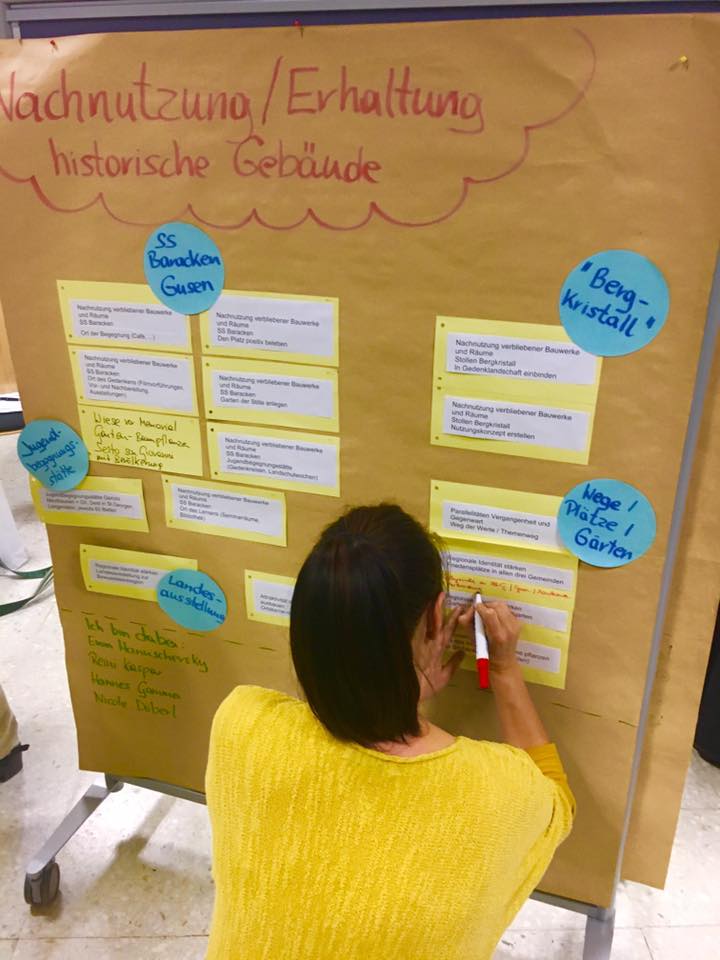 Nachnutzung/Erhaltung
historische Gebäude
SS
Baracken
Gusen
Nachnutzung verbliebener Bauwerke
und Räume
SS Baracken
Ort der Begegnung (Café, ...)
Nachnutzung verbliebener Bauwerke
und Räume
SS Baracken
Den Platz positiv beleben
Nachnutzung verbliebener Bauwerke
und Räume
SS Baracken
Ort des Gedenkens (Filmvorführungen,
Vor- und Nachbereitung,
Ausstellungen)
Nachnutzung verbliebener Bauwerke
und Räume
SS Baracken
Garten der Stille anlegen
Wiese vor Memorial
Garten-
Sesto San Giovanni
mit Bevölkerung
Nachnutzung verbliebener Bauwerke
und Räume
SS Baracken
Jugendbegegnungsstätte
(Gedenkreisen, Landschulwochen)
Jugend-
begegnungs-
stätte
Jugendbegegnungsstätte
Nachnutzung verbliebener Bauwerke
und Räume
SS Baracken
Ort des Lernens (Seminarräume,
Bibliothek)
Regionale Identität stärken
Landesausstellung zur
Bewusstseinsregion
Landes-
ausstellung
Attraktivität
ausbauen
Ich bin dabei:
Reini Kaspar
Hannes
Nicole
"Berg-
Kristall"
Nachnutzung verbliebener Bauwerke
und Räume
Stollen Bergkristall
In Gedenklandschaft einbinden
Nachnutzung verbliebener Bauwerke
und Räume
Stollen Bergkristall
Nutzungskonzept erstellen
Wege /
Plätze /
Gärten
Parallelitäten Vergangenheit und
Gegenwart
Weg der Werte / Themenweg
Regionale Identität stärken
Friedensplätze in allen drei Gemeinden
stärken
pflanzen